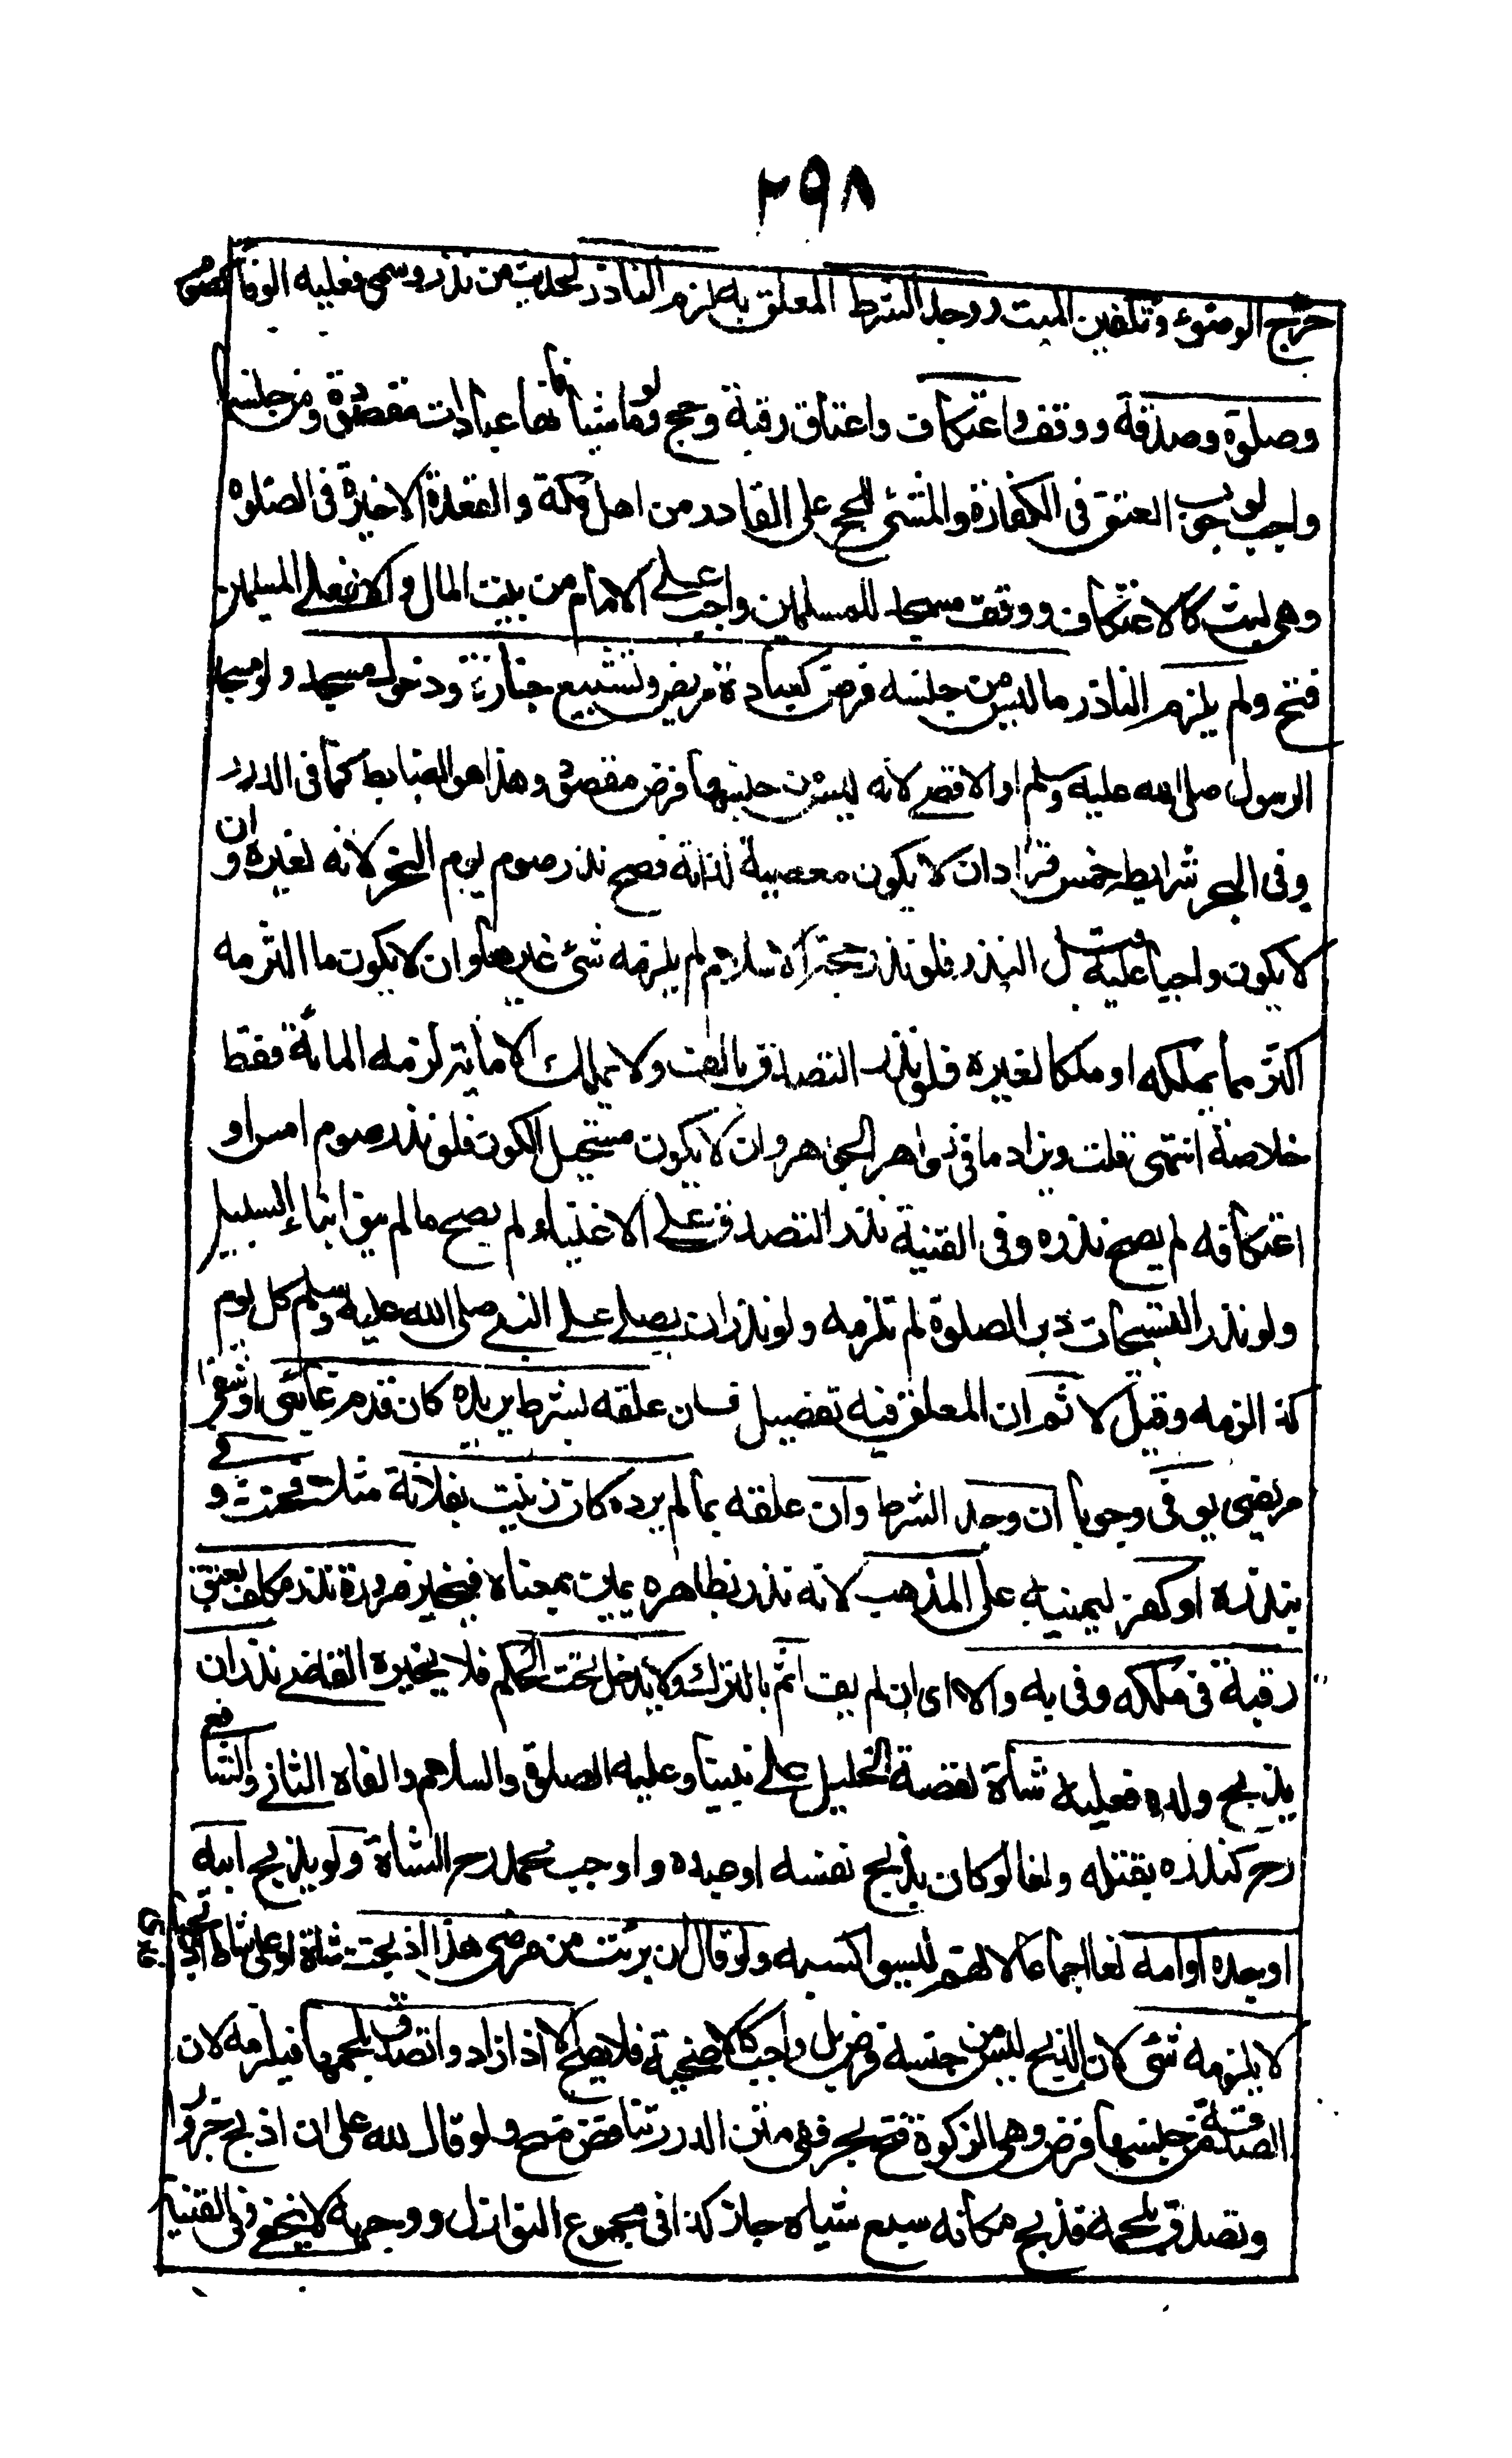 ٢٩٨
خرج الوضوء وتكفين الميت ووجد الشرط المعلق به لزم الناذر لحديث من نذر وسمى فعليه الوفا كصوم
وصلوة وصدقة ووقف واعتكاف واعتاق رقبة وحج ولو ماشيا فانها عبادات مقصودة ومن جنسها
واجب لوجوب العتق فى الكفارة والمشى للحج على القادر من اهل مكة والقعدة الاخيرة فى الصلوة
وهى لبث كالاعتكاف ووقف مسجد للمسلمين واجب على الامام من بيت المال والا فعلى المسلمين
فتح ولم يلزم الناذر ما ليس من جنسه فرض كعيادة مريض وتشييع جنازة ودخول مسجد ولو مسجد
الرسول صلى الله عليه وسلم او الاقصى لانه ليس من جنسها فرض مقصود وهذا هو الضابط كما فى الدرر
وفى البحر شرايطه خمس فزاد ان لا يكون معصية لذاته فصح نذر صوم يوم النحر لانه لغيره وان
لا يكون واجبا عليه قبل النذر فلو نذر حجة الاسلام لم يلزمه شئ غيرها وان لا يكون ما التزمه
اكثر مما يملكه او ملكا لغيره فلو نذر التصدق بالف ولا يملك الا مائة لزمه المائة فقط
خلاصة انتهى قلت ويزاد ما فى زواهر الجواهر وان لا يكون مستحيل الكون فلو نذر صوم امس او
اعتكافه لم يصح نذره وفى القنية نذر التصدق على الاغنياء لم يصح ما لم ينو ابناء السبيل
ولو نذر التسبيحات دبر الصلوة لم تلزمه ولو نذر ان يصلى على النبى صلى الله عليه وسلم كل يوم
كذا لزمه وقيل لا ثم ان المعلق فيه تفصيل فان علقه بشرط يريده كان قدم غائبى او شفى
مريضى يوفى وجوبا ان وجد الشرط وان علقه بما لم يرده كان زنيت بفلانة مثلا فحنث وفى
بنذره او كفر ليمينه على المذهب لانه نذر بظاهره يمين بمعناه فيخير ضرورة نذر مكلف بعتق
رقبة فى ملكه وفى به والا اى ان لم يف اثم بالترك ولا يدخل تحت الحكم فلا يخيره القاضى نذر ان
يذبح ولده فعليه شاة لقصة الخليل على نبينا وعليه الصلوة والسلام والغاه الثانى والشافعى
رح كنذره بقتله ولغا لو كان يذبح نفسه او عبده واوجب محمد رح الشاة ولو يذبح ابيه
او جده او امه لغا اجماعا لانهم ليسوا كسبه ولو قال ان برئت من مرضى هذا اذبحت شاة او على شاة اذبحها
لا يلزمه شئ لان الذبح ليس من جنسه فرض بل واجب كالاضحية فلا يصح الا اذا زاد واتصدق بلحمها فيلزمه لان
الصدقة من جنسها فرض وهى الزكوة فتح بحر ففى متن الدرر تناقض منح ولو قال لله على ان اذبح جزورا
وتصدق بلحمه فذبح مكانه سبع شياه جاز كذا فى مجموع النوازل ووجهه لا يخفى وفى القنية